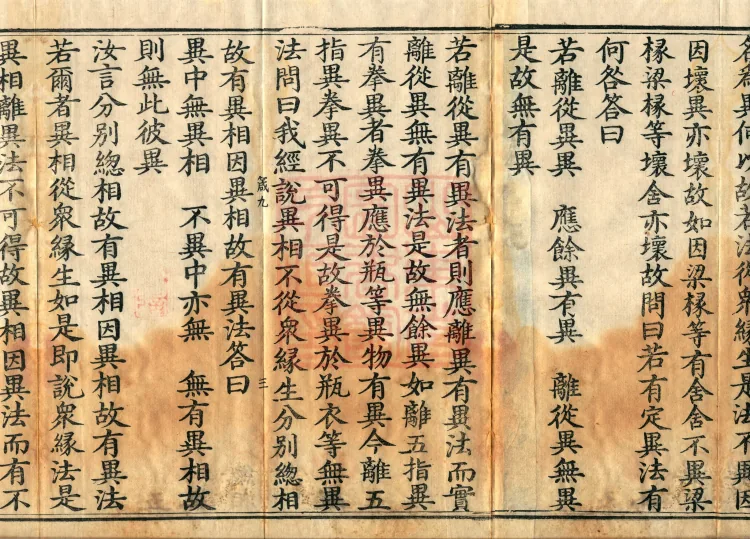 名為異何以故若法從衆緣生是法不異因
因壞異亦壞故如因梁椽等有舍舍不異梁
椽梁椽等壞舍亦壞故問曰若有定異法有
何咎答曰
若離從異異　應餘異有異　離從異無異
是故無有異
若離從異有異法者則應離異有異法而實
離從異無有異法是故無餘異如離五指異
有拳異者拳異應於瓶等異物有異今離五
指異拳異不可得是故拳異於瓶衣等無異
法問曰我經說異相不從衆緣生分別總相
九　三
故有異相因異相故有異法答曰
異中無異相　不異中亦無　無有異相故
則無此彼異
汝言分別總相故有異相因異相故有異法
若爾者異相從衆緣生如是即說衆緣法是
異相離異法不可得故異相因異法而有不